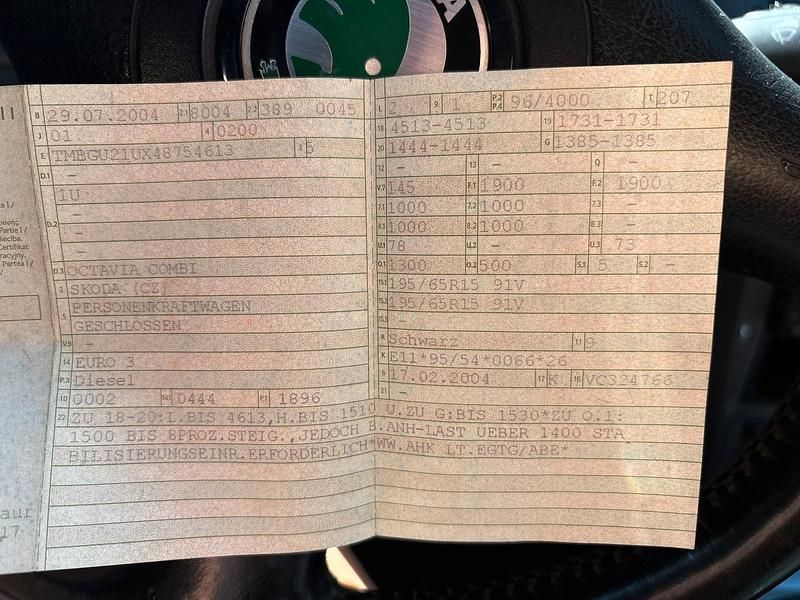 A
II
B 29.07.2004 2.1 8004 2.2 389 0045
J 01 4 0200
E TMBGU21UX48754613 3 5
D.1 —
1U
D.2 —
—
—
D.3 OCTAVIA COMBI
2 SKODA (CZ)
5 PERSONENKRAFTWAGEN
GESCHLOSSEN
V.9 —
14 EURO 3
P.3 Diesel
10 0002 14.1 0444 P.1 1896
L 2 9 1 P.2 P.4 96/4000 T 207
18 4513-4513 19 1731-1731
20 1444-1444 G 1385-1385
12 — 13 — Q —
V.7 145 F.1 1900 F.2 1900
7.1 1000 7.2 1000 7.3 —
8.1 1000 8.2 1000 8.3 —
U.1 78 U.2 — U.3 73
O.1 1300 O.2 500 S.1 5 S.2 —
15.1 195/65R15 91V
15.2 195/65R15 91V
15.3 —
R Schwarz 11 9
K E11*95/54*0066*26
6 17.02.2004 17 K 16 VC324766
21 —
22 ZU 18-20:L.BIS 4613,H.BIS 1510 U.ZU G:BIS 1530*ZU O.1:
1500 BIS 8PROZ.STEIG.,JEDOCH B.ANH-LAST UEBER 1400 STA
BILISIERUNGSEINR.ERFORDERLICH*WW.AHK LT.EGTG/ABE*
Partie I /
Certifikat
Partea I /
aur
17